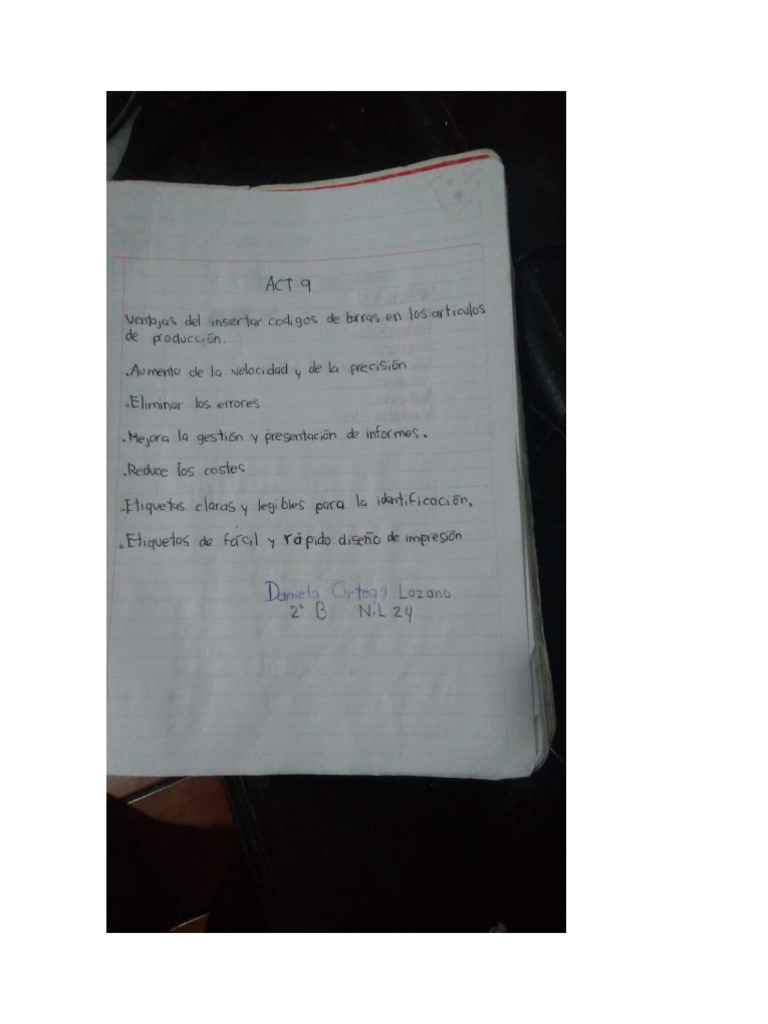 ACT 9
Ventajas del insertar codigos de barras en los articulos
de producción.
.Aumento de la velocidad y de la precisión
.Eliminar los errores
.Mejora la gestión y presentación de informes.
.Reduce los costes
.Etiquetas claras y legibles para la identificación.
.Etiquetas de fácil y rápido diseño de impresión
Daniela Ortega Lozano
2° B N.L 24